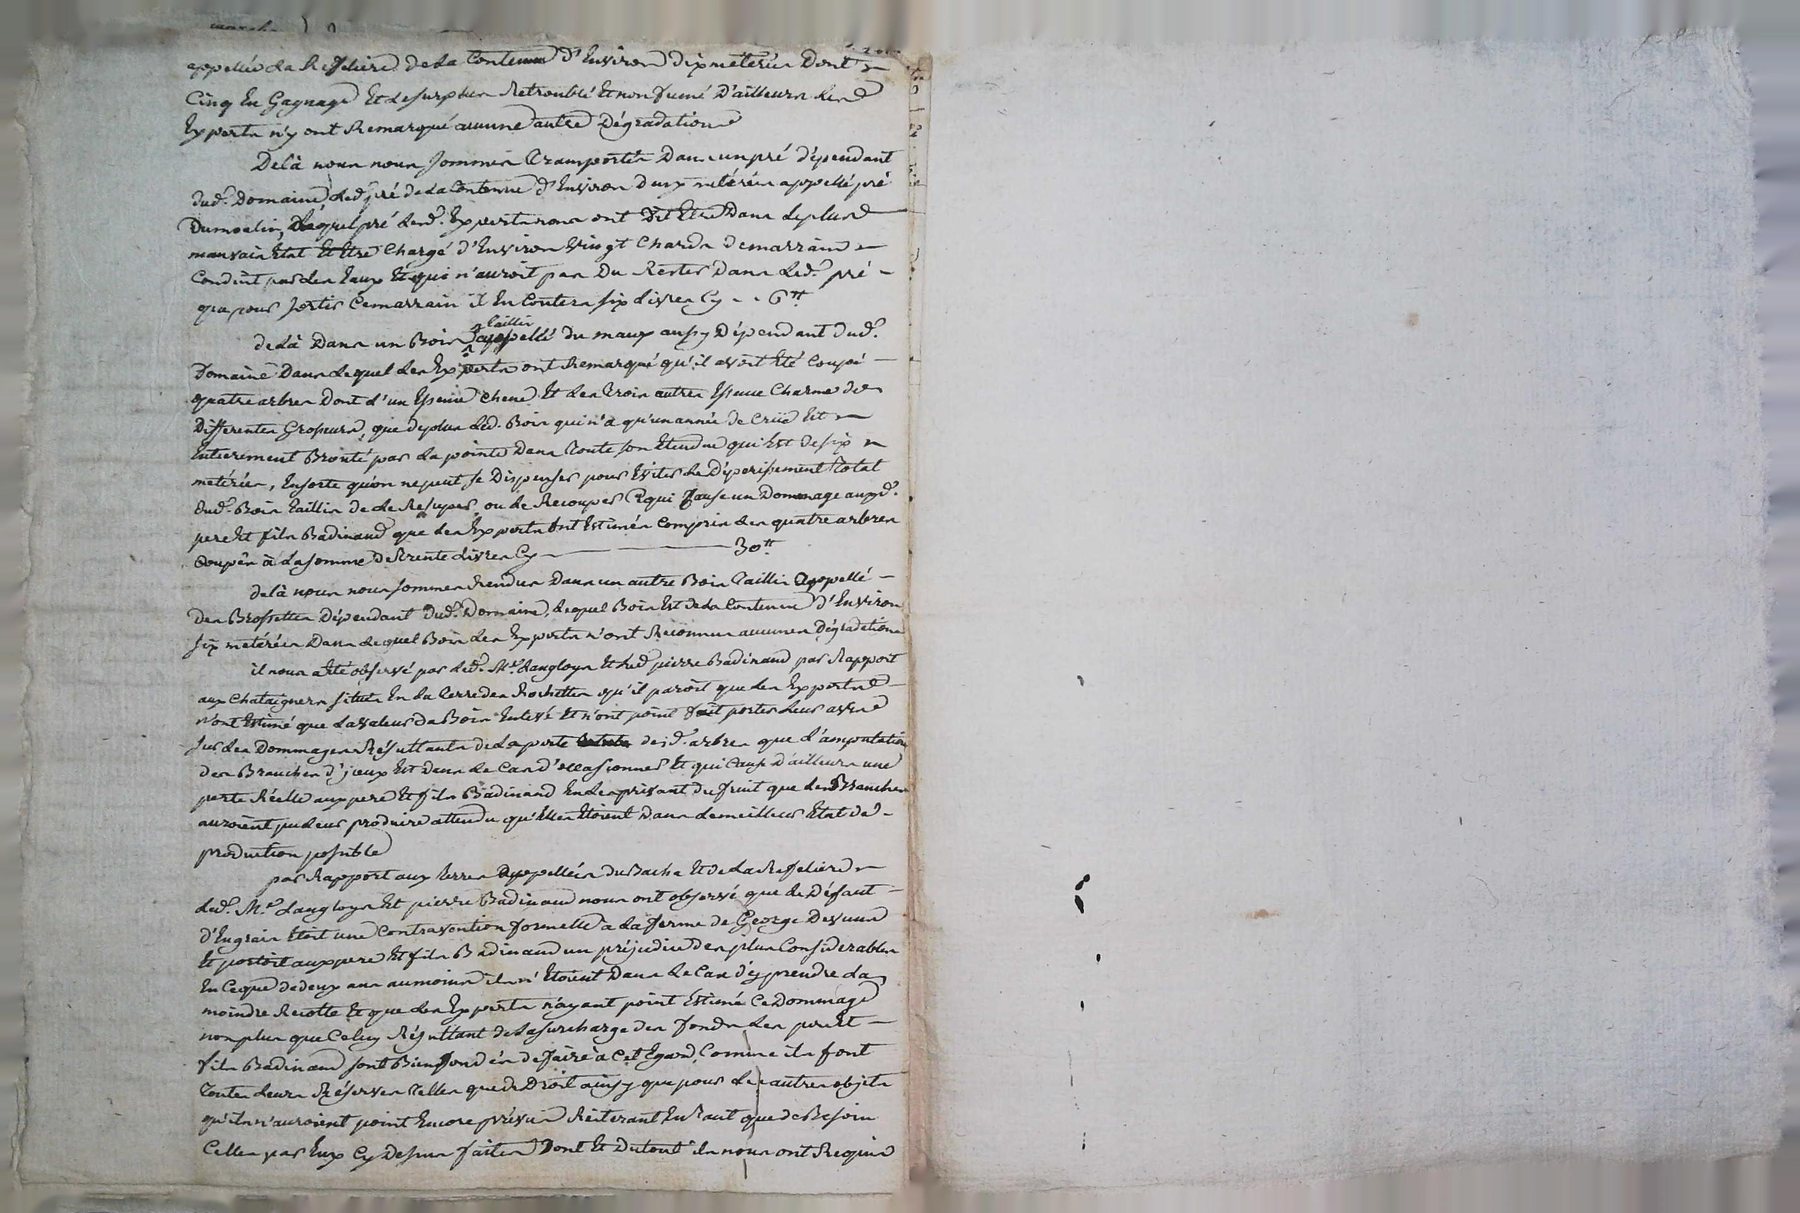 appellée La Reffeliere de La Contenue d'Environ dix meterées Dont
Cinq En Gagnage Et Le surplus Retroublé Et non fumé D'ailleurs Les
Experts n'y ont Remarqué aucune autre Dégradation
Delà nous nous sommes Transportés Dans un pré dépendant
dud. Domaine, Led. pré de La Contenue d'Environ deux meterées appellé pré
Dumoulin, Lequel pré Lesd. Experts nous ont Dit Etre Dans Le plus
mauvais Etat Et Etre Chargé d'Environ Vingt Chards de marrain
Conduit par Les Eaux Et qui n'auroit pas Du Rester Dans Led. pré
que pour sortir Ce marrain il En Coutera six Livres Cy - - 6tt
delà Dans un Bois taillis appellé du maux aussy Dépendant dud.
Domaine Dans Lequel Les Experts ont Remarqué qu'il avoit Eté Coupé
quatre arbres Dont L'un Espece Chene Et Les Trois autres Espece Charme de
Differentes Grosseurs, que de plus Led. Bois qui n'a qu'une année de Crüe Est
Entierement Brouté par La pointe Dans Toute son Etendue qui Est de six
meterées, Ensorte qu'on ne peut se Dispenser pour Eviter Le Déperissement Total
dud. Bois Taillis de Le Reseper, ou Le Recouper Ce qui Cause un Dommage auxd.
pere Et fils Badinand que Les Experts ont Estimés Compris Les quatre arbres
Coupés à La somme de Trente Livres Cy — 30tt
delà nous nous sommes Rendus Dans un autre Bois Taillis appellé
Des Brossettes Dépendant dud. Domaine, Lequel Bois Est de La Contenue d'Environ
six meterées Dans Lequel Bois Les Experts n'ont Reconnus aucunes Dégradations
il nous a Eté observé par Led. Me. Langloys Et Led. pierre Badinand par Rapport
aux Chataigners situés En La Terre des Rochettes qu'il paroit que Les Experts
n'ont Estimé que La valeur du Bois Enlevé Et n'ont point fait porter Leur avis
sur Les Dommages Résultants de La perte desd. arbres que L'amputation
des Branches d'jceux Est Dans Le Cas d'occasionner Et qui Cause D'ailleurs une
perte Réelle aux pere Et fils Badinand En Les privant du fruit que Les Branches
auroient pu Leur produire attendu qu'Elles Etoient Dans Le meilleur Etat de
production possible
par Rapport aux Terres appellées du Bacha Et de La Reffeliere
Led. Me. Langloys Et pierre Badinand nous ont observé que Le Défaut
d'Engrais Etoit une Contravention formelle a La ferme de George
Et portoit aux pere Et fils Badinand un préjudice des plus Considerables
En Ce que de deux ans au moins ils n'Etoient Dans Le Cas d'y prendre La
moindre Recolte Et que Les Experts n'ayant point Estimé Ce Dommage
non plus que Celuy Résultant de La surcharge des fonds Les pere Et
fils Badinand sont Bien fondés de faire à Cet Egard, Comme ils font
Toutes Leurs Réserves Telles que de Droit ainsy que pour Les autres objets
qu'ils n'auroient point Encore prévus Réiterant En Tant que de Besoin
Celles par Eux Cy Dessus faites Dont Et Du tout ils nous ont Requis